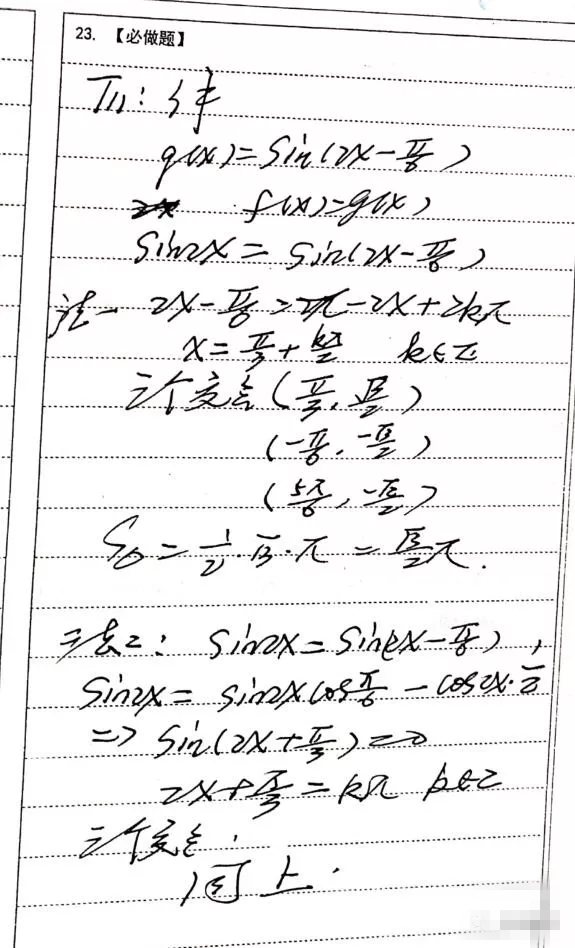 23. 【必做题】
g(x)=Sin(2x-π/6)
f(x)=g(x)
Sin2x = Sin(2x-π/6)
法一 2x-π/6=π-2x+2kπ
x=π/3+kπ/2 k∈Z
三个交点(π/3, √3/2)
(-π/6, -√3/2)
(5π/6, -√3/2)
S△=1/2·√3·π=√3/2π.
法2: Sin2x=Sin(2x-π/6)
Sin2x= sin2xcosπ/6 - cos2x·1/2
=> Sin(2x+π/3)=0
2x+π/3=kπ k∈Z
三个交点:
同上.